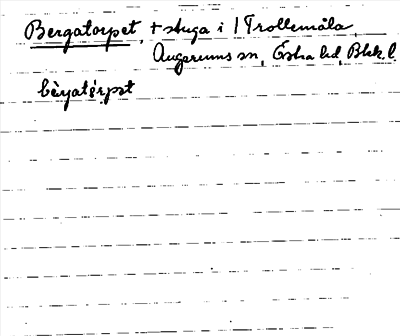 Bergatorpet, + stuga i 1 Trollemåla,
Augerums sn, Östra hd, Blek. l.
bæ̀rgatå̀rpət